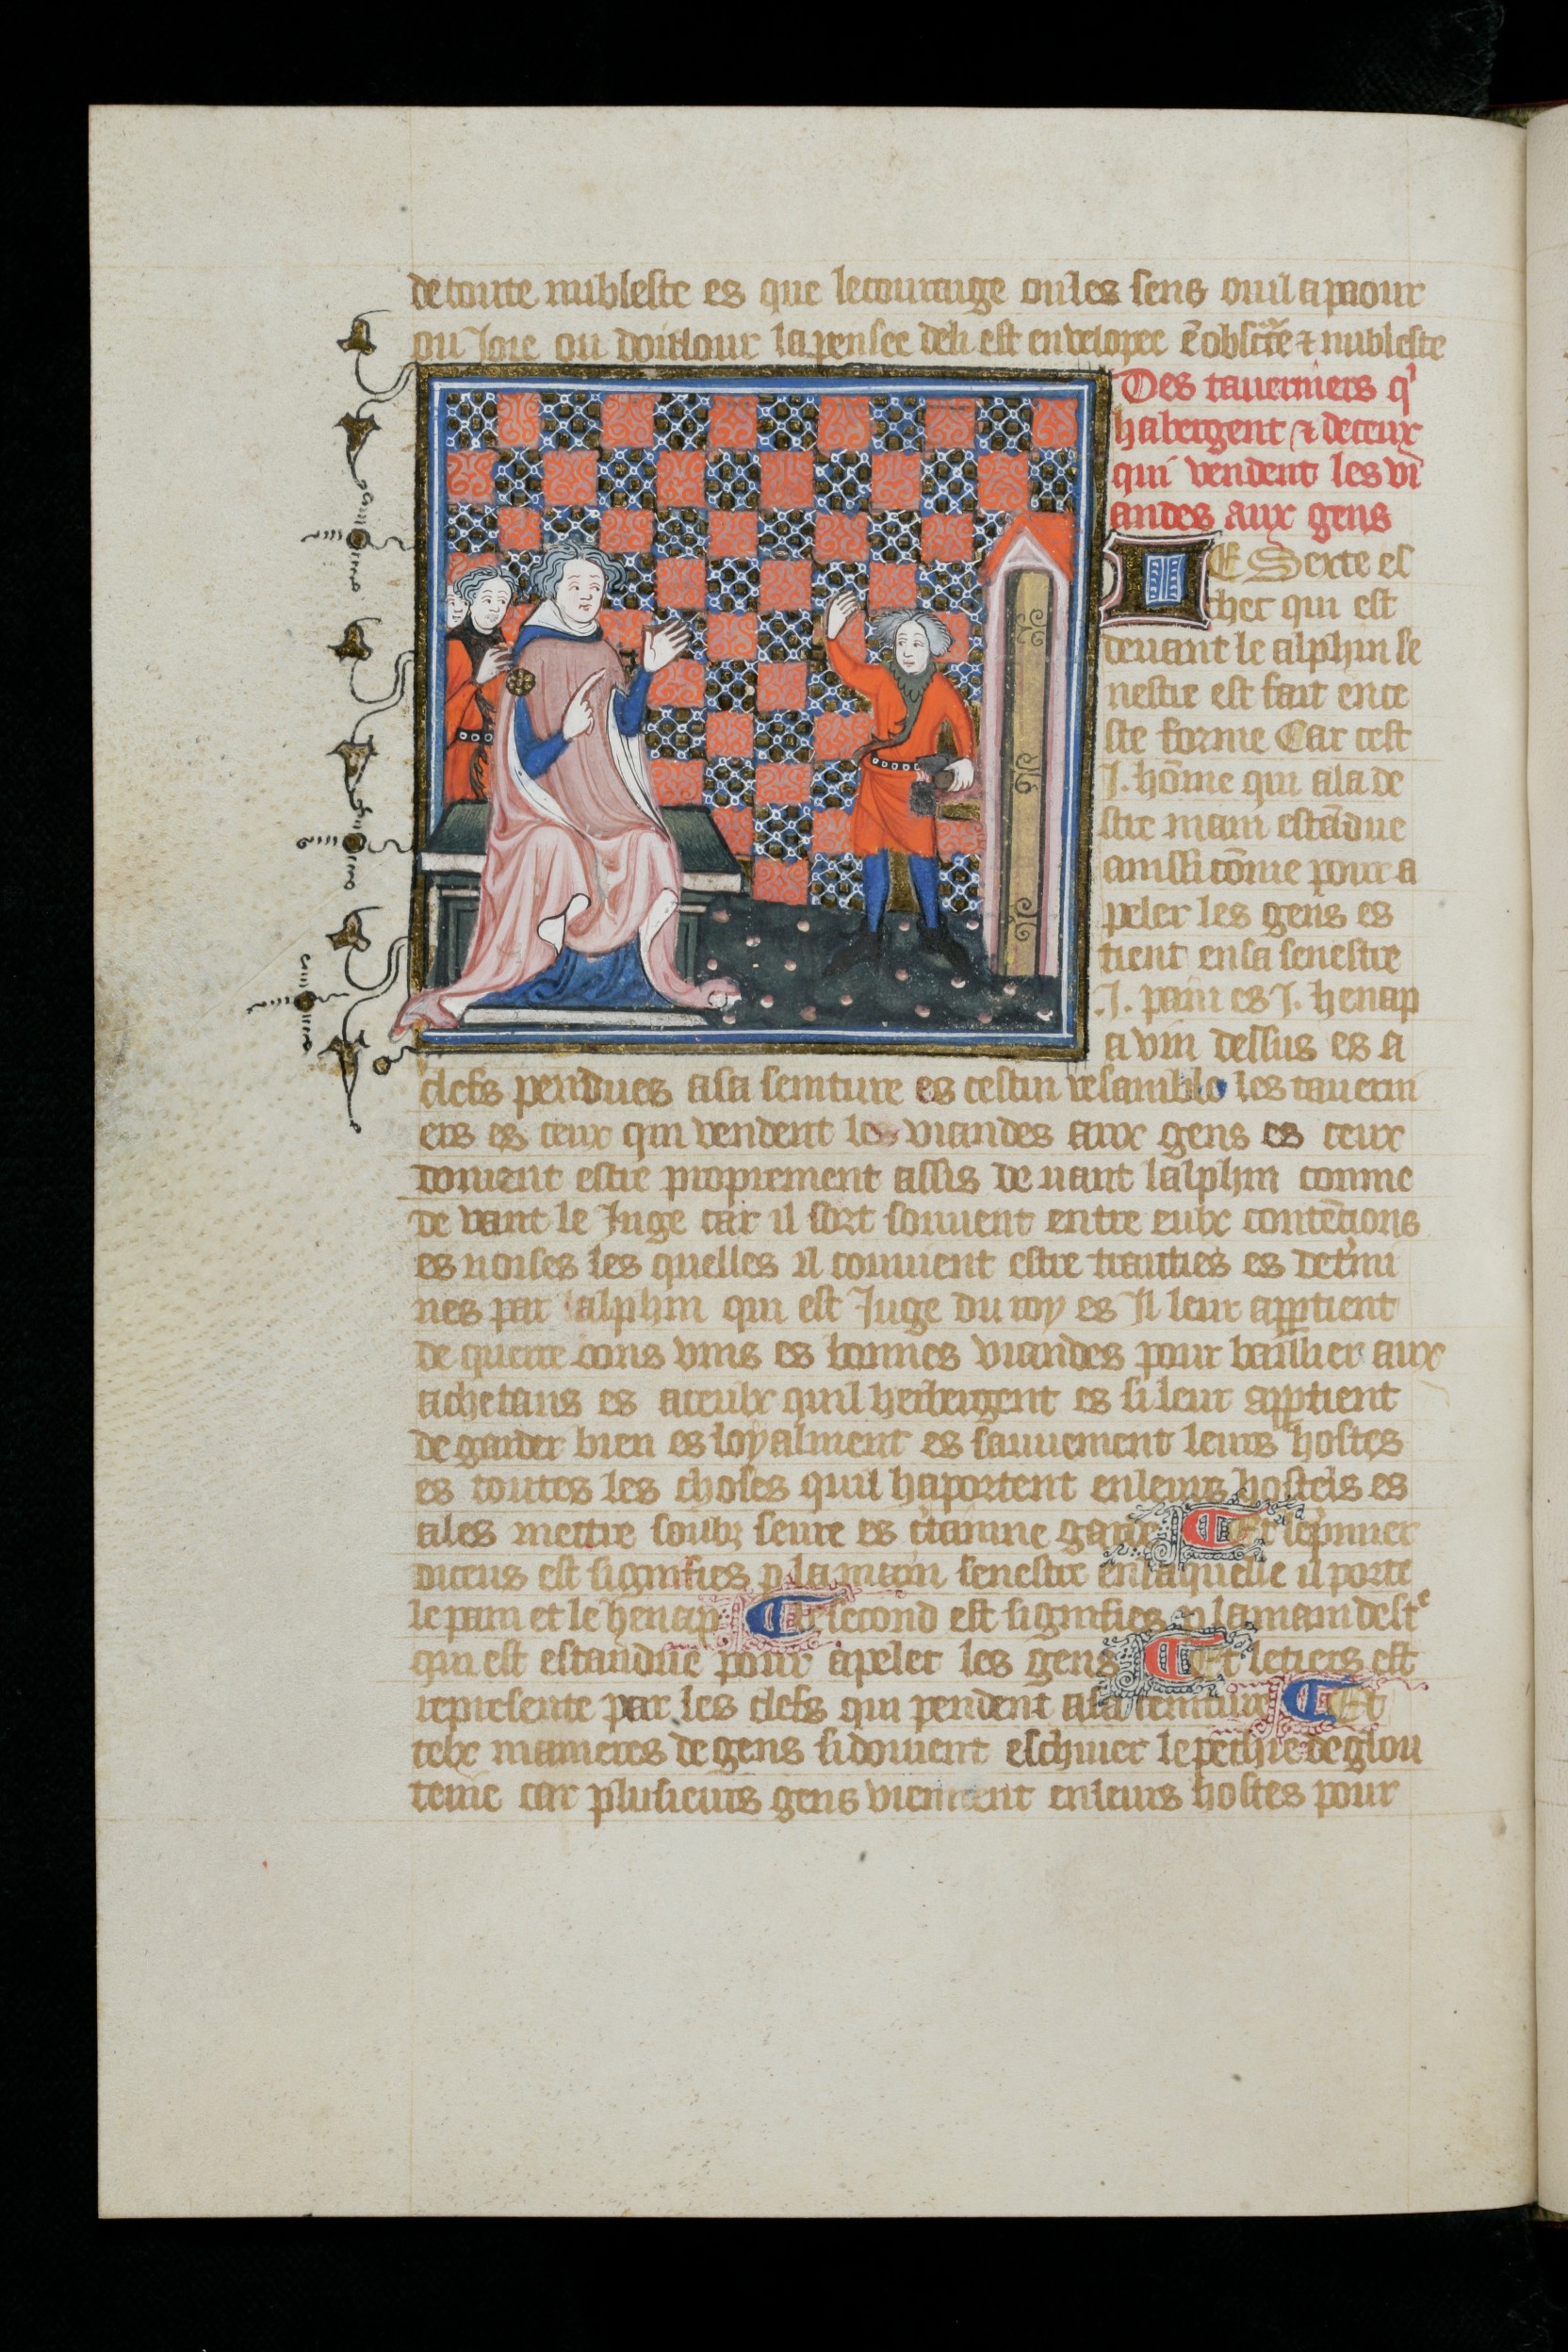 de toute nubleste es que le courauge ou les sens ou il a paour
ou Joie ou doulour la pensee deli est envelopee ē obscᵗte ⁊ nubleste
Des taverniers qⁱ
habergent ⁊ de ceux
qui vendent les vi
andes aux gens
LE Sexte es
chec qui est
devant le alphin se
nestre est fait en ce
ste forme Car cest
.J. hōme qui a la de
stre main estādue
aussi cōme pour a
peler les gens es
tient en sa senestre
.J. pain es .J. henap
a vin dessus es a
clefs pendues a sa seinture es cestui resamble les taverni
ers es ceux qui vendent les viandes aux gens es ceux
doivent estre proprement assis devant lalphin comme
devant le Juge car il sort souvent entre eulx contēcions
es noises les quelles il convient estre traitties es det'mi
nes par lalphin qui est Juge du roy es Il leur apptient
de querre bons vins es bonnes viandes pour baillier aux
achetans es a ceulx quil herbergent es si leur apptient
de garder bien es loyalment es sauvement leurs hostes
es toutes les choses quil haportent en leurs hostels es
a les mettre soubz seure es certainne garde Et le p̄mier
diceus est signifies p la main senestre en laquelle il porte
le pain et le henap Et le second est signifies p la main destᵉ
qui est estandue pour apeler les gens Et le tiers est
represente par les clefs qui pendent a sa seinture Et
telx manieres de gens si doivent eschiver le pechie de glou
tenie car plusieurs gens viennent en leurs hostes pour